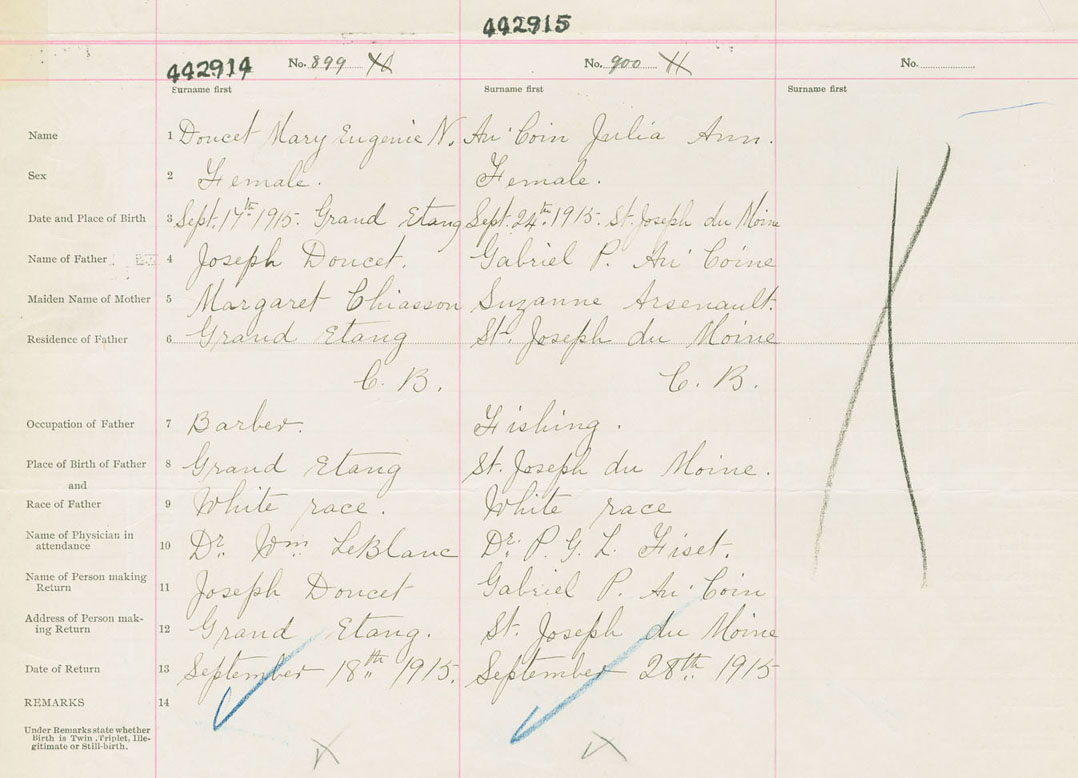 442915
442914 No. 899 No. 900 No.
Surname first Surname first Surname first
Name 1 Doucet Mary Eugenie N. Au'Coin Julia Ann.
Sex 2 Female. Female.
Date and Place of Birth 3 Sept. 17th 1915. Grand Etang Sept. 24th 1915. St. Joseph du Moine
Name of Father 4 Joseph Doucet. Gabriel P. Au'Coine
Maiden Name of Mother 5 Margaret Chiasson Suzanne Arsenault.
Residence of Father 6 Grand Etang St. Joseph du Moine
C. B. C. B.
Occupation of Father 7 Barber. Fishing.
Place of Birth of Father 8 Grand Etang St. Joseph du Moine.
and
Race of Father 9 White race. White race
Name of Physician in
attendance 10 Dr. Wm LeBlanc Dr. P. G. L. Fiset.
Name of Person making
Return 11 Joseph Doucet Gabriel P. Au'Coin
Address of Person mak-
ing Return 12 Grand Etang. St. Joseph du Moine
Date of Return 13 September 18th 1915. September 28th 1915
REMARKS 14
Under Remarks state whether
Birth is Twin, Triplet, Ille-
gitimate or Still-birth.